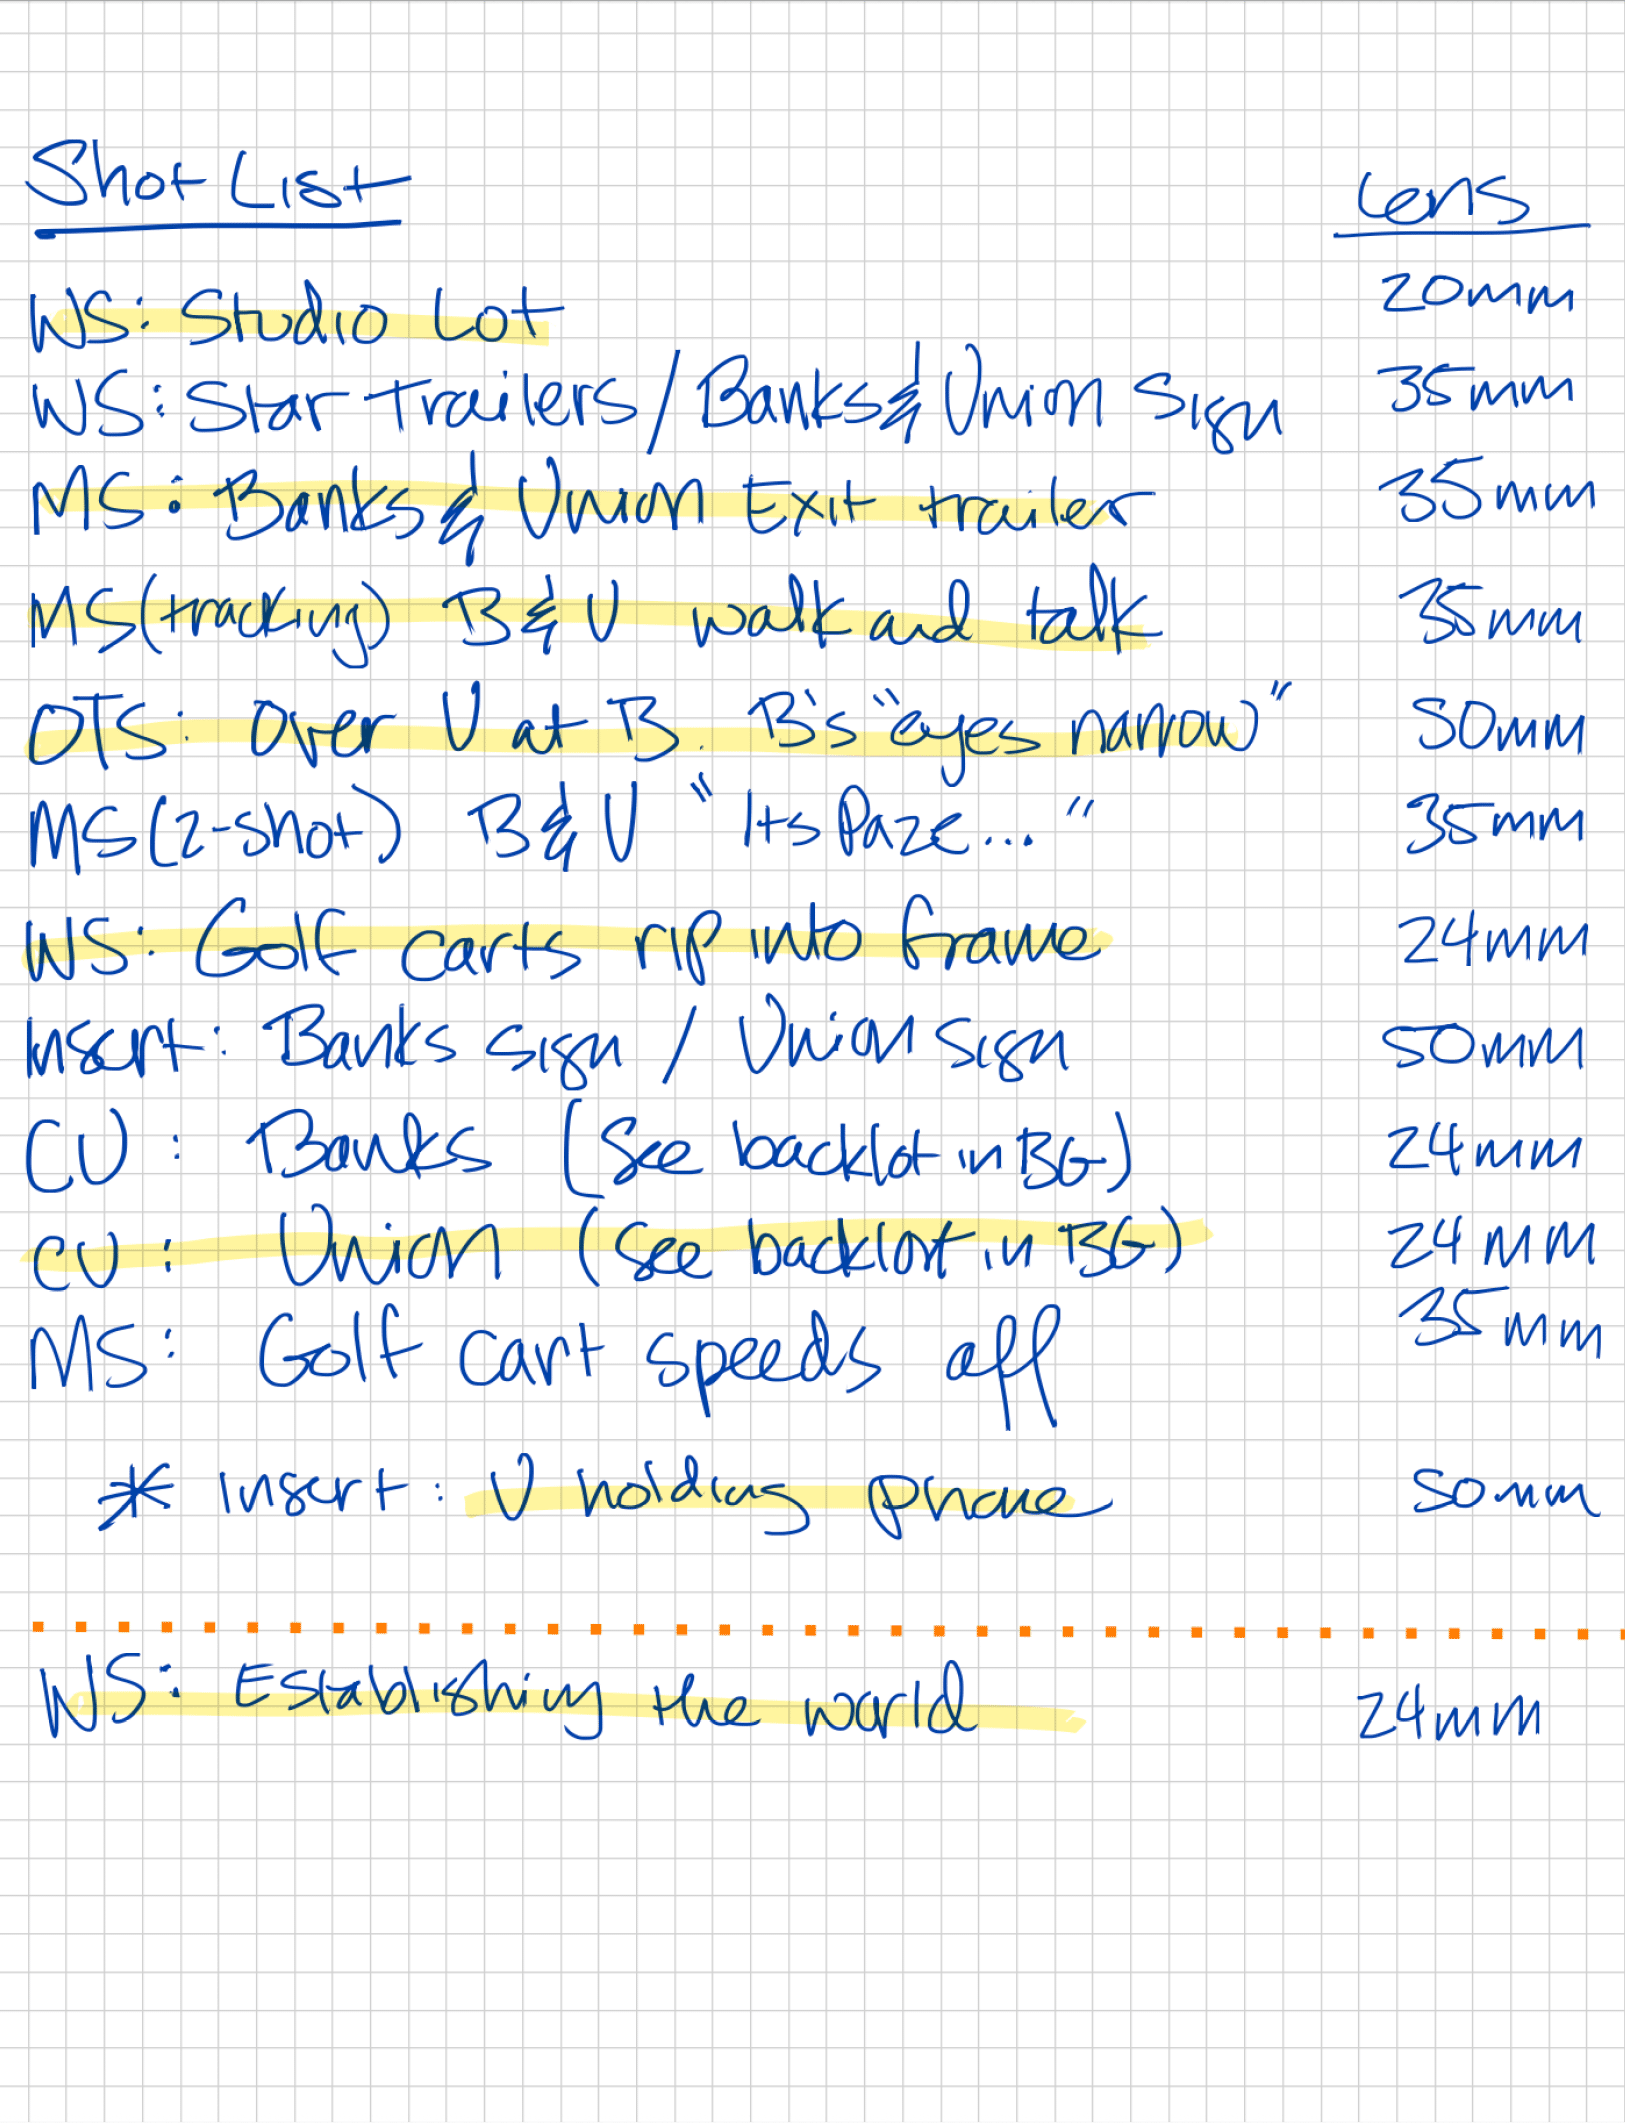 Shot List Lens
WS: Studio Lot 20mm
WS: Star trailers / Banks & Union Sign 35mm
MS: Banks & Union Exit trailer 35mm
MS (tracking) B & U walk and talk 35mm
OTS: Over U at B. B's "eyes narrow" 50mm
MS (2-shot) B & U "Its Paze..." 35mm
WS: Golf carts rip into frame 24mm
Insert: Banks sign / Union Sign 50mm
CU: Banks (See backlot in BG) 24mm
CU: Union (See backlot in BG) 24mm
MS: Golf cart speeds off 35mm
* Insert: U holding phone 50mm
WS: Establishing the world 24mm